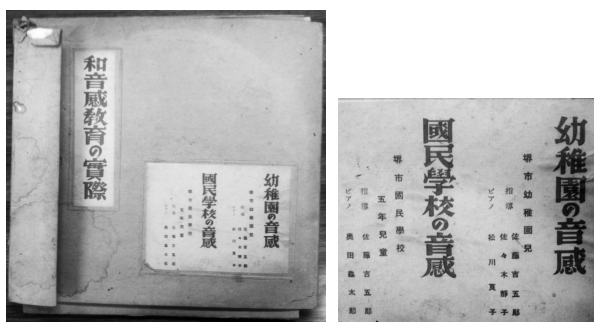 和音感教育の實際
幼稚園の音感
國民學校の音感
幼稚園の音感
堺市幼稚園兒
指導 佐藤吉五郎
佐々木靜子
ピアノ
國民學校の音感
堺市國民學校
五年兒童
指導 佐藤吉五郎
ピアノ